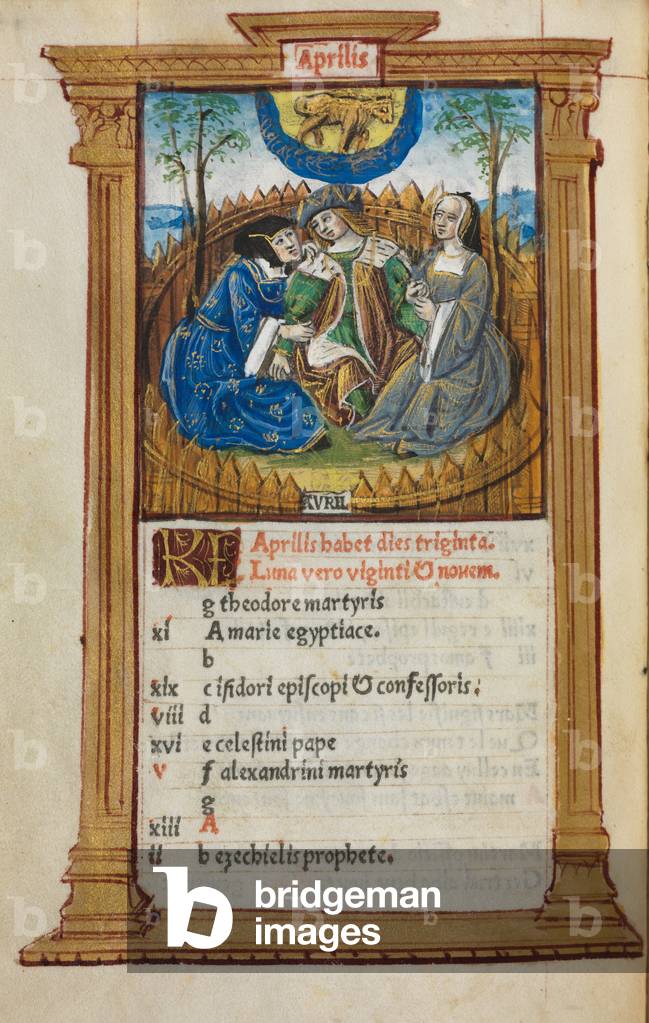 Aprilis
AVRIL
KL Aprilis habet dies triginta.
Luna vero viginti & novem.
g theodore martyris
xi A marie egyptiace.
b
xix c isidori episcopi & confessoris:
viii d
xvi e celestini pape
v f alexandrini martyris
g
xiii A
ii b ezechielis prophete.
b bridgeman
images